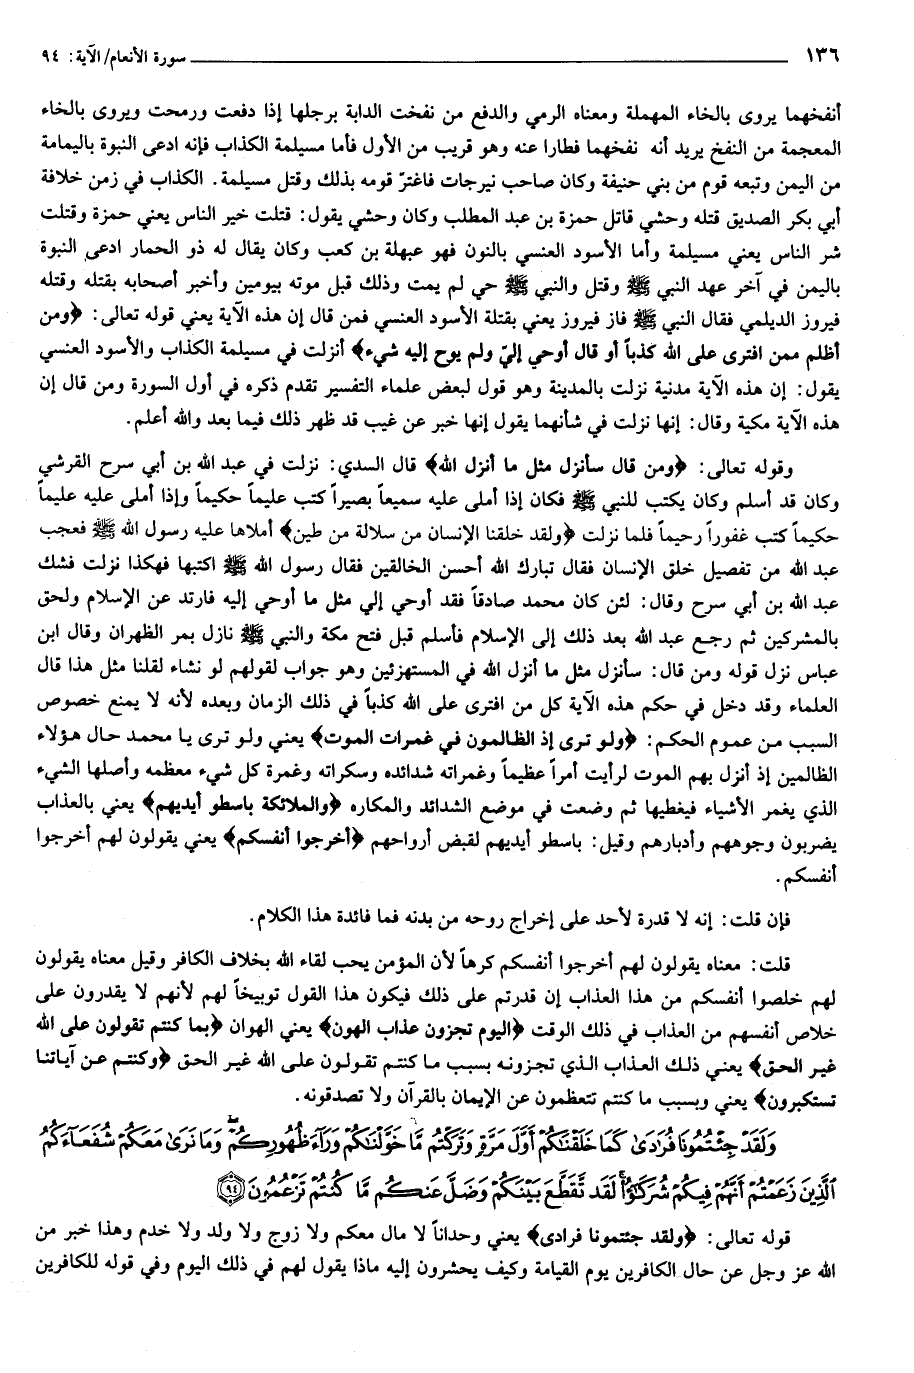 ١٣٦ سورة الأنعام/ الآية: ٩٤
أنفخهما يروى بالخاء المهملة ومعناه الرمي والدفع من نفخت الدابة برجلها إذا دفعت ورمحت ويروى بالخاء
المعجمة من النفخ يريد أنه نفخهما فطارا عنه وهو قريب من الأول فأما مسيلمة الكذاب فإنه ادعى النبوة باليمامة
من اليمن وتبعه قوم من بني حنيفة وكان صاحب نيرجات فاغترّ قومه بذلك وقتل مسيلمة. الكذاب في زمن خلافة
أبي بكر الصديق قتله وحشي قاتل حمزة بن عبد المطلب وكان وحشي يقول: قتلت خير الناس يعني حمزة وقتلت
شر الناس يعني مسيلمة وأما الأسود العنسي بالنون فهو عبهلة بن كعب وكان يقال له ذو الحمار ادعى النبوة
باليمن في آخر عهد النبي ﷺ وقتل والنبي ﷺ حي لم يمت وذلك قبل موته بيومين وأخبر أصحابه بقتله وقتله
فيروز الديلمي فقال النبي ﷺ فاز فيروز يعني بقتلة الأسود العنسي فمن قال إن هذه الآية يعني قوله تعالى: ﴿ومن
أظلم ممن افترى على الله كذباً أو قال أوحي إليّ ولم يوح إليه شيء﴾ أنزلت في مسيلمة الكذاب والأسود العنسي
يقول: إن هذه الآية مدنية نزلت بالمدينة وهو قول لبعض علماء التفسير تقدم ذكره في أول السورة ومن قال إن
هذه الآية مكية وقال: إنها نزلت في شأنهما يقول إنها خبر عن غيب قد ظهر ذلك فيما بعد والله أعلم.
وقوله تعالى: ﴿ومن قال سأنزل مثل ما أنزل الله﴾ قال السدي: نزلت في عبد الله بن أبي سرح القرشي
وكان قد أسلم وكان يكتب للنبي ﷺ فكان إذا أملى عليه سميعاً بصيراً كتب عليماً حكيماً وإذا أملى عليه عليماً
حكيماً كتب غفوراً رحيماً فلما نزلت ﴿ولقد خلقنا الإنسان من سلالة من طين﴾ أملاها عليه رسول الله ﷺ فعجب
عبد الله من تفصيل خلق الإنسان فقال تبارك الله أحسن الخالقين فقال رسول الله ﷺ اكتبها فهكذا نزلت فشك
عبد الله بن أبي سرح وقال: لئن كان محمد صادقاً فقد أوحي إلي مثل ما أوحي إليه فارتد عن الإسلام ولحق
بالمشركين ثم رجع عبد الله بعد ذلك إلى الإسلام فأسلم قبل فتح مكة والنبي ﷺ نازل بمر الظهران وقال ابن
عباس نزل قوله ومن قال: سأنزل مثل ما أنزل الله في المستهزئين وهو جواب لقولهم لو نشاء لقلنا مثل هذا قال
العلماء وقد دخل في حكم هذه الآية كل من افترى على الله كذباً في ذلك الزمان وبعده لأنه لا يمنع خصوص
السبب من عموم الحكم: ﴿ولو ترى إذ الظالمون في غمرات الموت﴾ يعني ولو ترى يا محمد حال هؤلاء
الظالمين إذ أنزل بهم الموت لرأيت أمراً عظيماً وغمراته شدائده وسكراته وغمرة كل شيء معظمه وأصلها الشيء
الذي يغمر الأشياء فيغطيها ثم وضعت في موضع الشدائد والمكاره ﴿والملائكة باسطو أيديهم﴾ يعني بالعذاب
يضربون وجوههم وأدبارهم وقيل: باسطو أيديهم لقبض أرواحهم ﴿أخرجوا أنفسكم﴾ يعني يقولون لهم أخرجوا
أنفسكم.
فإن قلت: إنه لا قدرة لأحد على إخراج روحه من بدنه فما فائدة هذا الكلام.
قلت: معناه يقولون لهم أخرجوا أنفسكم كرهاً لأن المؤمن يحب لقاء الله بخلاف الكافر وقيل معناه يقولون
لهم خلصوا أنفسكم من هذا العذاب إن قدرتم على ذلك فيكون هذا القول توبيخاً لهم لأنهم لا يقدرون على
خلاص أنفسهم من العذاب في ذلك الوقت ﴿اليوم تجزون عذاب الهون﴾ يعني الهوان ﴿بما كنتم تقولون على الله
غير الحق﴾ يعني ذلك العذاب الذي تجزونه بسبب ما كنتم تقولون على الله غير الحق ﴿وكنتم عن آياتنا
تستكبرون﴾ يعني وبسبب ما كنتم تتعظمون عن الإيمان بالقرآن ولا تصدقونه.
وَلَقَدْ جِئْتُمُونَا فُرَادَىٰ كَمَا خَلَقْنَاكُمْ أَوَّلَ مَرَّةٍ وَتَرَكْتُم مَّا خَوَّلْنَاكُمْ وَرَآءَ ظُهُورِكُمْ وَمَا نَرَىٰ مَعَكُمْ شُفَعَآءَكُمُ
ٱلَّذِينَ زَعَمْتُمْ أَنَّهُمْ فِيكُمْ شُرَكَٰٓؤُا۟ لَقَد تَّقَطَّعَ بَيْنَكُمْ وَضَلَّ عَنكُم مَّا كُنتُمْ تَزْعُمُونَ ﴿٩٤﴾
قوله تعالى: ﴿ولقد جئتمونا فرادى﴾ يعني وحداناً لا مال معكم ولا زوج ولا ولد ولا خدم وهذا خبر من
الله عز وجل عن حال الكافرين يوم القيامة وكيف يحشرون إليه ماذا يقول لهم في ذلك اليوم وفي قوله للكافرين